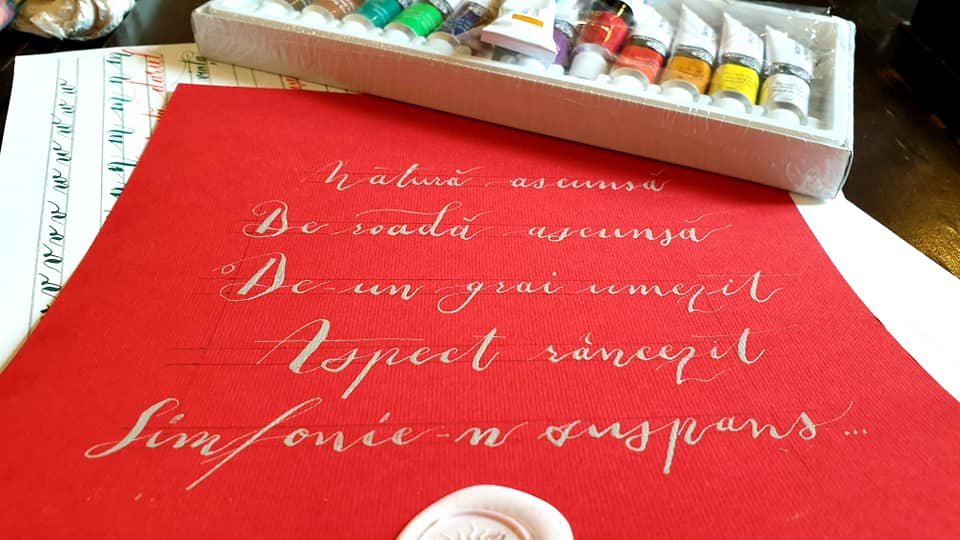 Natură ascunsă
De roadă ascunsă
De-un grai umezit
Aspect râncezit
Simfonie-n suspans...